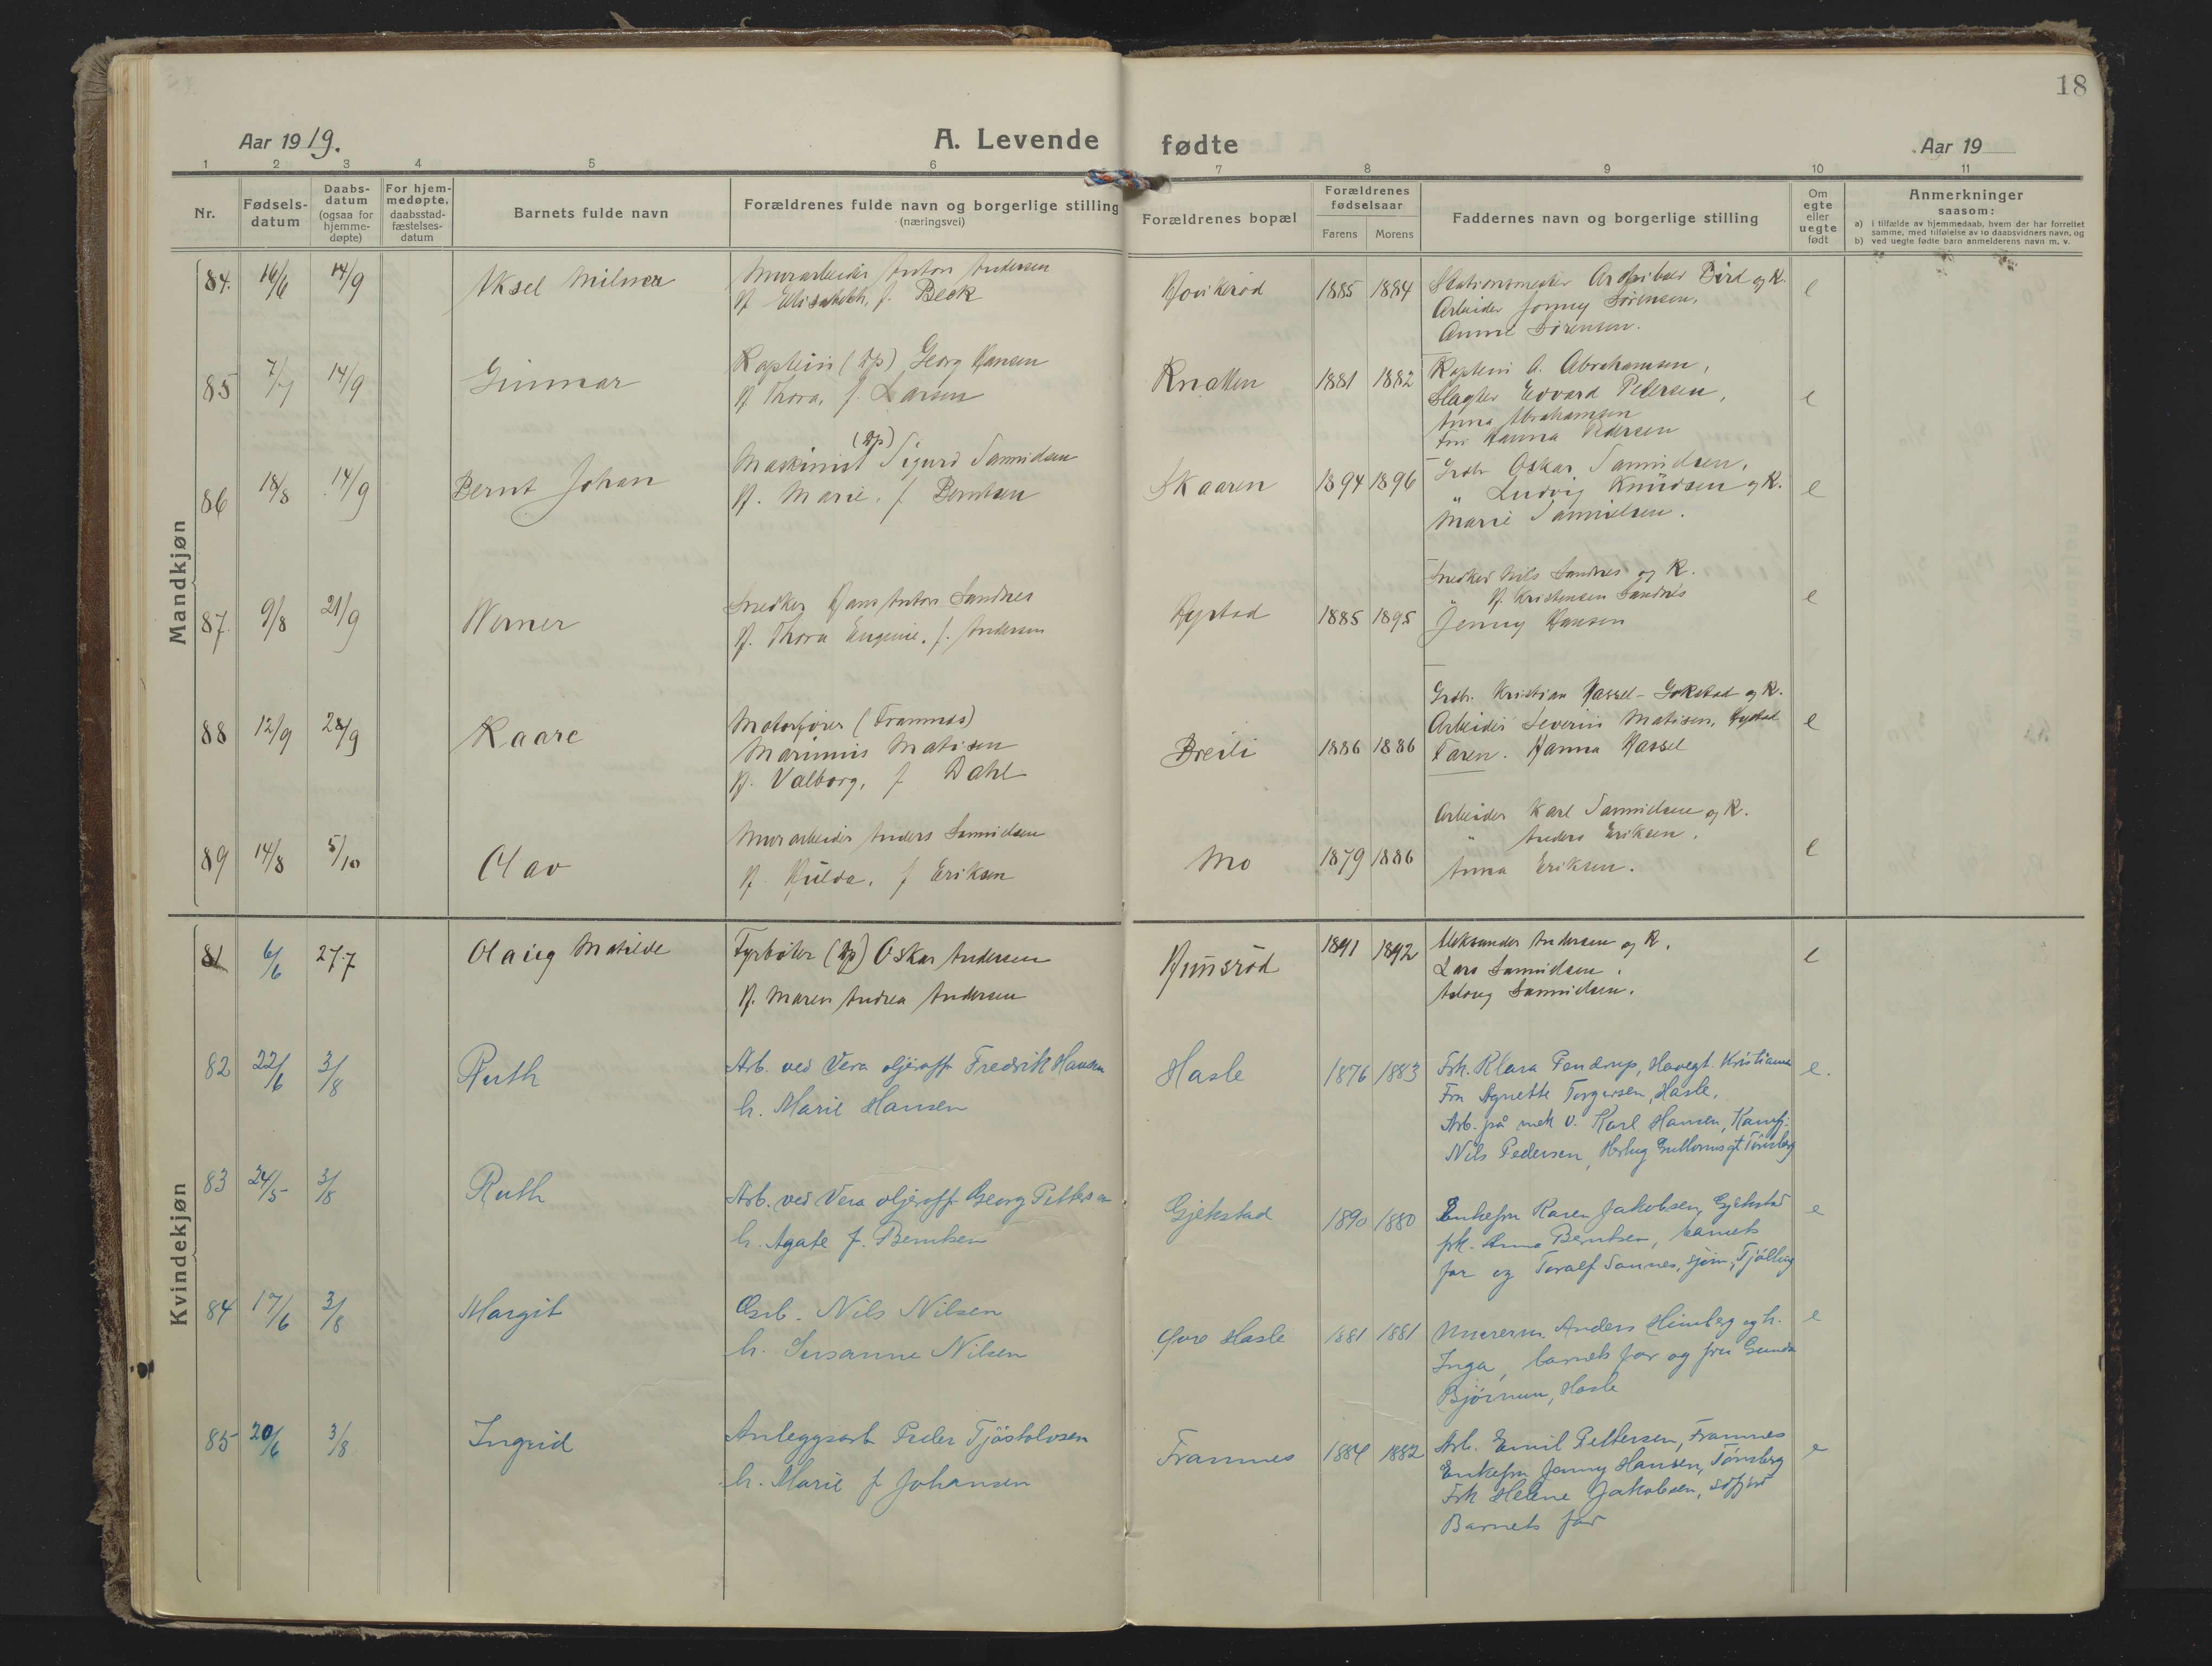 18
Aar 1919.
A. Levende fødte
Aar 19
1 2 3 4 5 6 7 8 9 10 11
Nr.
Fødsels-
datum
Daabs-
datum
(ogsaa for
hjemme-
døpte)
For hjem-
medøpte,
daabsstad-
fæstelses-
datum
Barnets fulde navn
Forældrenes fulde navn og borgerlige stilling
(næringsvei)
Forældrenes bopæl
Forældrenes
fødselsaar
Farens Morens
Faddernes navn og borgerlige stilling
Om
egte
eller
uegte
født
Anmerkninger
saasom:
a) i tilfælde av hjemmedaab, hvem der har forrettet
samme, med tilføielse av to daabsvidners navn, og
b) ved uegte fødte barn anmelderens navn m. v.
Mandkjøn
84. 16/6 14/9 Aksel Milner
Murarbeider Anton Andersen
H. Elisabeth, f. Beck
1885 1884
Stationsmester Archibald Bird og K.
Arbeider Jonny Sørensen,
Anne Sørensen.
e
85 7/7 14/9 Gunnar
Kaptein (Dp) Georg Hansen
H. Thora, f. Larsen
Knatten 1881 1882
Kaptein A. Abrahamsen,
Slagter Edvard Pedersen,
Anna Abrahamsen
Fru Hanna Pedersen
e
86 18/8 14/9 Bernt Johan
(Dp)
Maskinist Sigurd Samuelsen
H. Marie, f. Berntsen
Skaaren 1894 1896
Grdbr. Oskar Samuelsen,
" Ludvig Knudsen og K.
Marie Samuelsen.
e
87. 9/8 21/9 Werner
Snedker Hans Anton Sandnes
H. Thora Eugenie, f. Andersen
Nystad 1885 1895
Snedker Nils Sandnes og K.
" H. Kristensen Sandnes
Jenny Hansen
e
88 12/9 28/9 Kaare
Motorfører (Framnæs)
Marinius Matisen
H. Valborg, f Dahl
Breili 1886 1886
Grdbr. Kristian Hassel - Gokstad og K.
Arbeider Severin Matisen, Nystad
Faren. Hanna Hassel
e
89 14/8 5/10 Olav
Murarbeider Anders Samuelsen
H. Hulda, f Eriksen
Mo 1879 1886
Arbeider Karl Samuelsen og K.
" Anders Eriksen,
Anna Eriksen.
e
Kvindekjøn
81 6/6 27.7 Olaug Matilde
Fyrbøter (Dp) Oskar Andersen
H. Maren Andrea Andersen
Hunsrød 1891 1892
Aleksander Andersen og K.
Lars Samuelsen,
Aslaug Samuelsen.
e
82 22/6 3/8 Ruth
Arb. ved Vera oljeraff Fredrik Hansen
h. Marie Hansen
Hasle 1876 1883
Frk. Klara Pendrup, Havegt. Kristiania
Fru Agnette Torgersen, Hasle,
Arb. på mek v. Karl Hansen, Kamfj.
Nils Pedersen, Herlug Guttormsgt Tønsberg
e.
83 24/5 3/8 Ruth
Arb. ved Vera oljeraff Georg Pettersen
h. Agate f. Berntsen
Gjekstad 1890 1880
Enkefru Karen Jakobsen, Gjekstad
frk. Anna Berntsen, barnets
far og Toralf Sannes, sjøm, Tjølling
e
84 17/6 3/8 Margit
Arb. Nils Nilsen
h. Susanne Nilsen
Øvre Hasle 1881 1881
Murerm. Anders Himberg og h.
Inga, barnets far og fru Gunda
Bjørnum, Hasle
e
85 20/6 3/8 Ingrid
Anleggsarb Peder Tjøstolvsen
h. Marie f Johansen
Framnes 1884 1882
Arb. Emil Pettersen, Framnes
Enkefru Jenny Hansen, Tønsberg
Frk Helene Jakobsen,
Barnets far
e